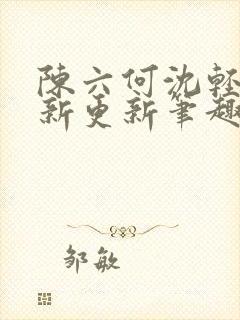 陳六何沈輕
新更新筆趣
邹敏